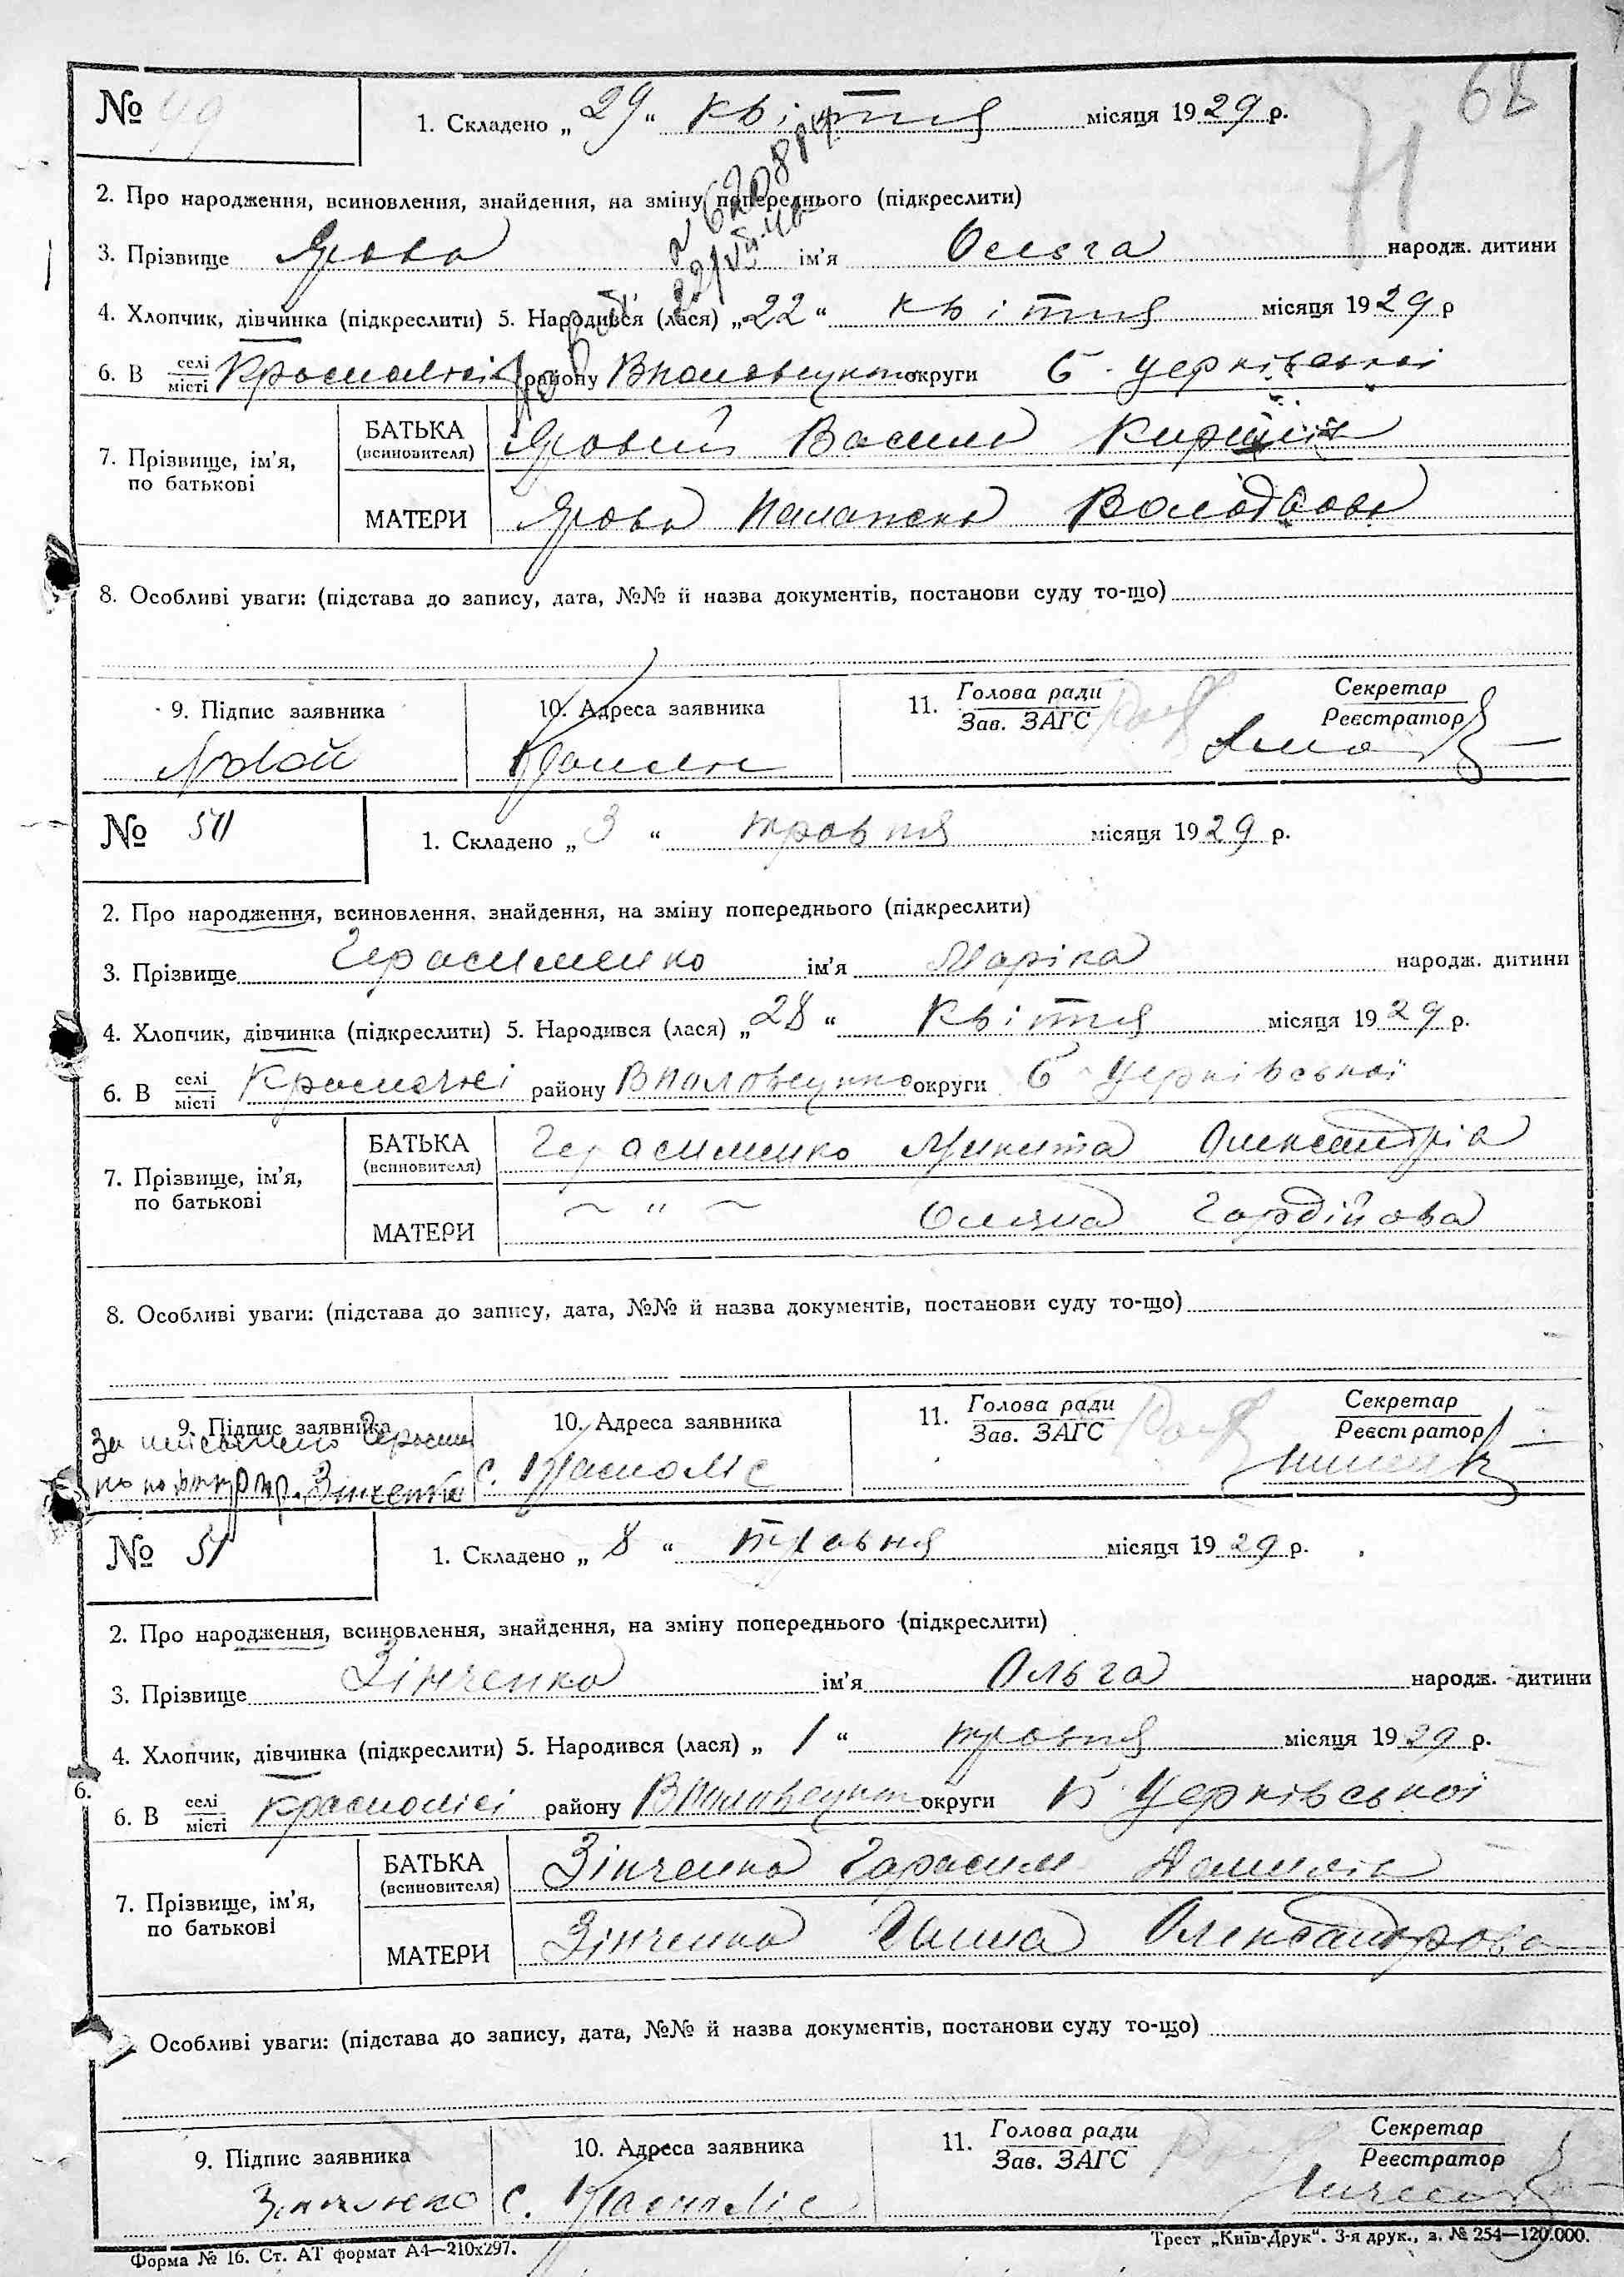 68
№ 49
1. Складено „ 29 “ квітня місяця 1929 р.
71
2. Про народження, всиновлення, знайдення, на зміну попереднього (підкреслити)
3. Прізвище Ярова ім'я Ольга народж. дитини
4. Хлопчик, дівчинка (підкреслити) 5. Народився (лася) „ 22 “ квітня місяця 1929 р
6. В селі/місті району округи Б. Церківської
7. Прізвище, ім'я, по батькові
БАТЬКА (всиновителя) Яровий Василь
МАТЕРИ Ярова Палажка
8. Особливі уваги: (підстава до запису, дата, №№ й назва документів, постанови суду то-що)
9. Підпис заявника 10. Адреса заявника 11. Голова ради/Зав. ЗАГС Секретар/Реєстратор
№ 50
1. Складено „ 3 “ травня місяця 1929 р.
2. Про народження, всиновлення, знайдення, на зміну попереднього (підкреслити)
3. Прізвище Герасименко ім'я Маріка народж. дитини
4. Хлопчик, дівчинка (підкреслити) 5. Народився (лася) „ 28 “ квітня місяця 1929 р.
6. В селі/місті району округи Б Церківської
7. Прізвище, ім'я, по батькові
БАТЬКА (всиновителя) Герасименко Микита Олександрів
МАТЕРИ ~ " ~ Оляна Гордійова
8. Особливі уваги: (підстава до запису, дата, №№ й назва документів, постанови суду то-що)
9. Підпис заявника 10. Адреса заявника 11. Голова ради/Зав. ЗАГС Секретар/Реєстратор
с. Красноліс
№ 51
1. Складено „ 8 “ травня місяця 1929 р.
2. Про народження, всиновлення, знайдення, на зміну попереднього (підкреслити)
3. Прізвище Зінченко ім'я Ольга народж. дитини
4. Хлопчик, дівчинка (підкреслити) 5. Народився (лася) „ 1 “ травня місяця 1929 р.
6.
6. В селі/місті Краснолісі району округи Б Церківської
7. Прізвище, ім'я, по батькові
БАТЬКА (всиновителя) Зінченко Гарасим Данилів
МАТЕРИ Зінченко Ганна Олександрова
Особливі уваги: (підстава до запису, дата, №№ й назва документів, постанови суду то-що)
9. Підпис заявника 10. Адреса заявника 11. Голова ради/Зав. ЗАГС Секретар/Реєстратор
Зінченко с. Красноліс
Форма № 16. Ст. АТ формат А4—210х297. Трест „Київ-Друк“. 3-я друк., з. № 254—120.000.